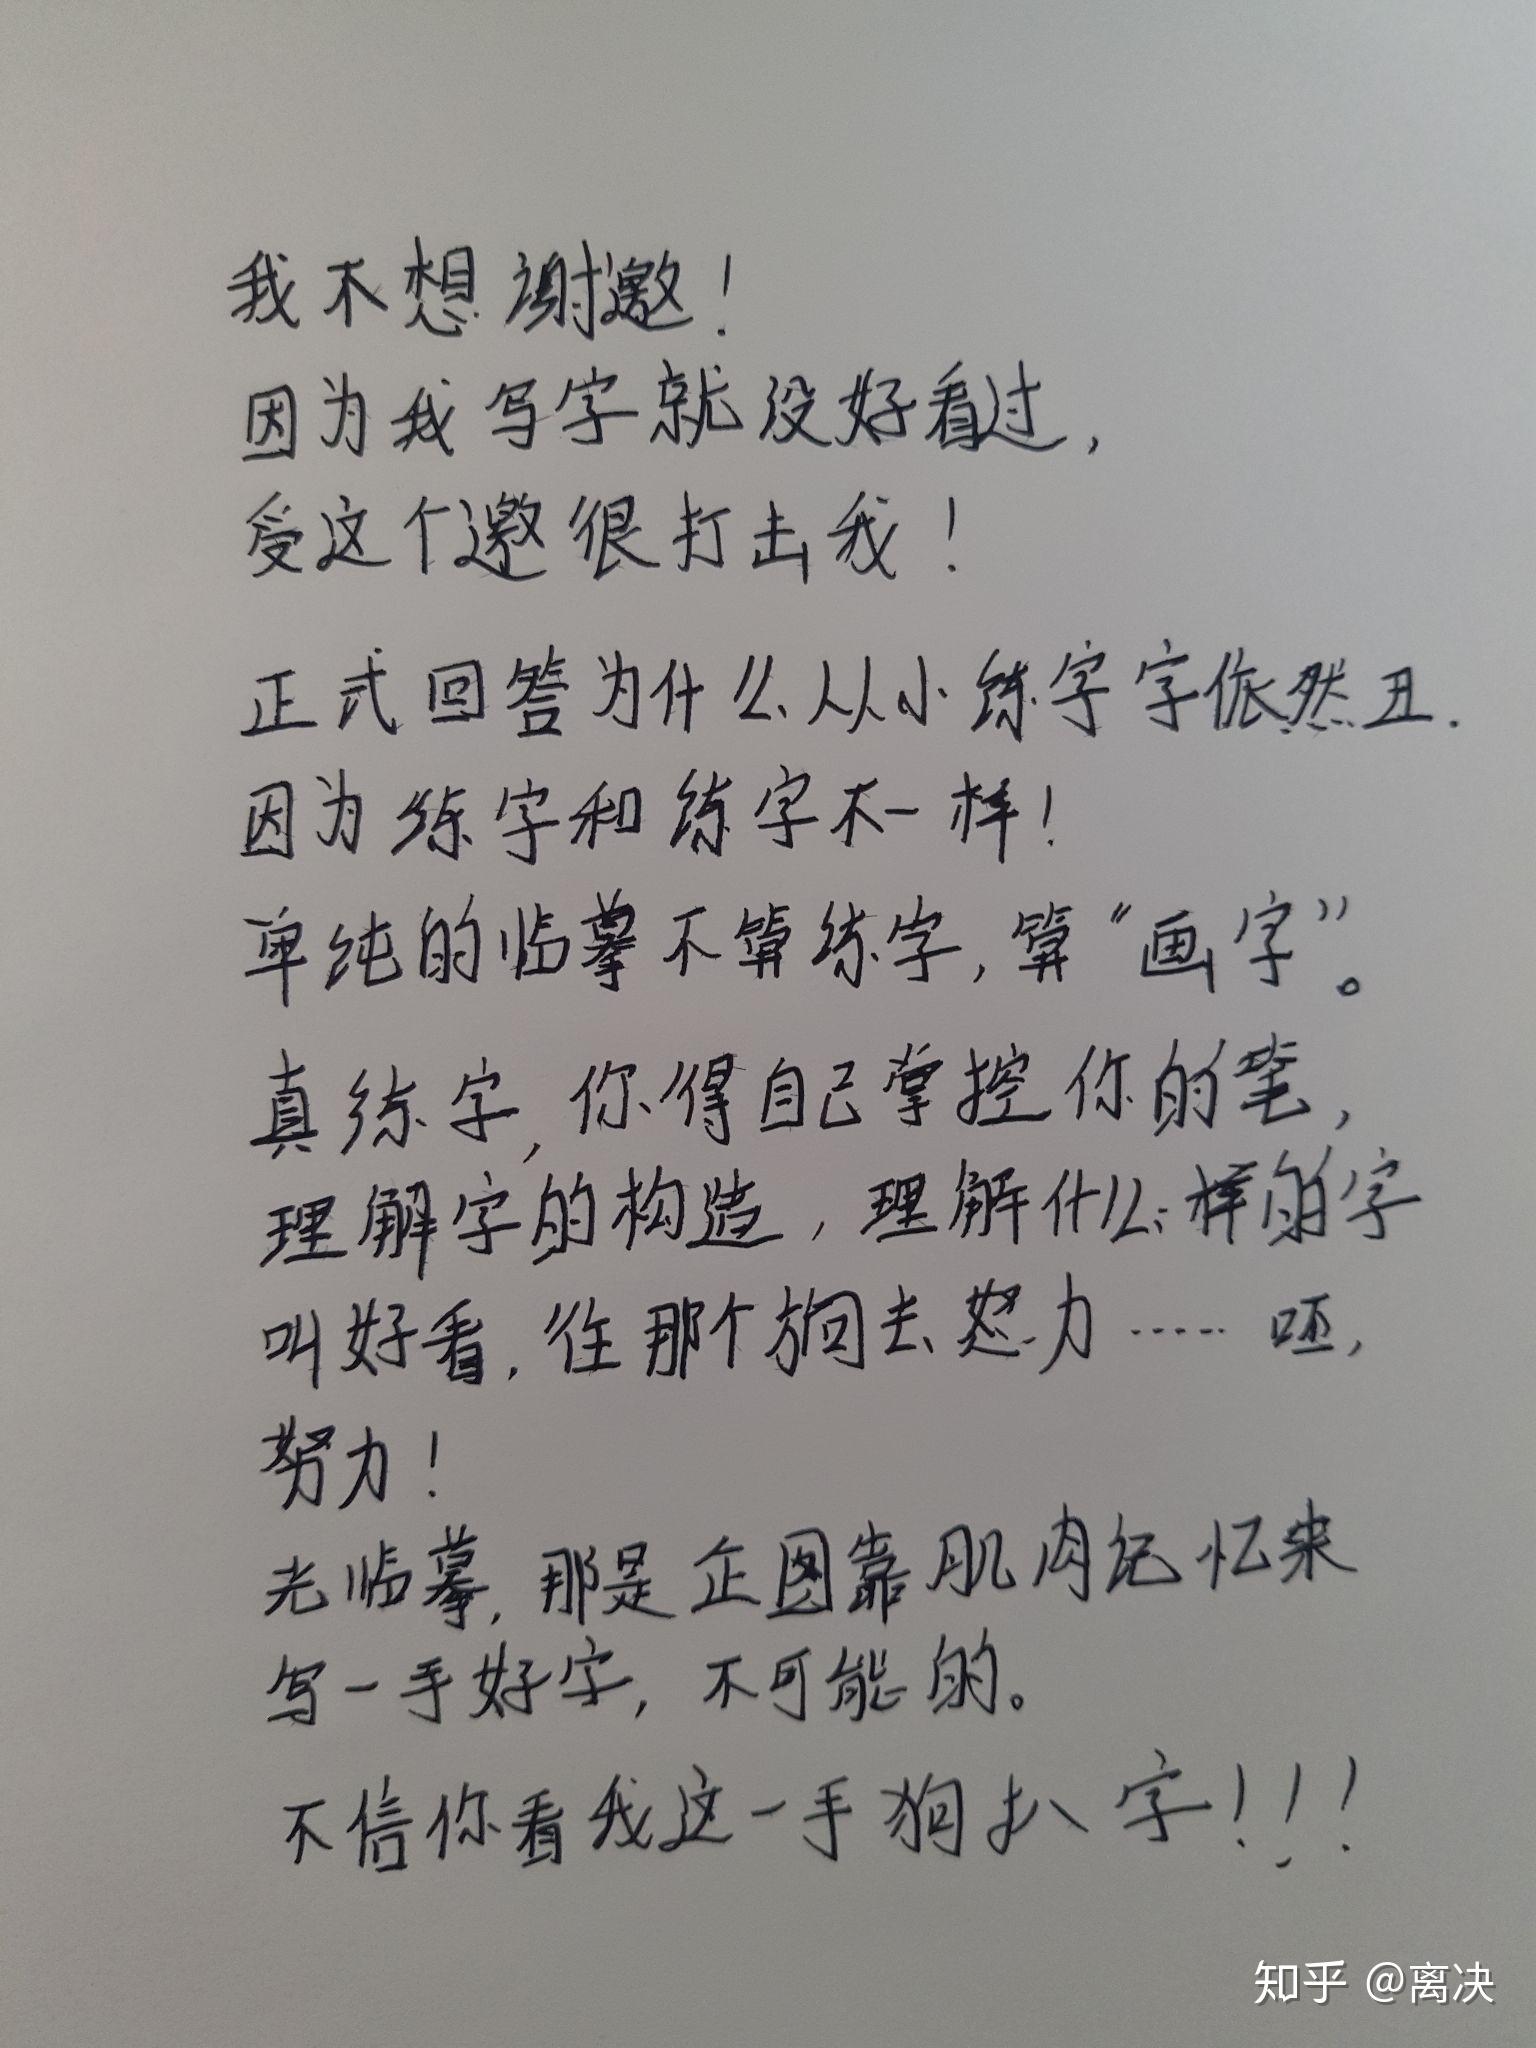 我不想谢邀！
因为我写字就没好看过，
受这个邀很打击我！
正式回答为什么从小练字字依然丑.
因为练字和练字不一样！
单纯的临摹不算练字，算“画字”。
真练字，你得自己掌控你的笔，
理解字的构造，理解什么样的字
叫好看，往那个方向去怒力……呸，
努力！
光临摹，那是企图靠肌肉记忆来
写一手好字，不可能的。
不信你看我这一手狗扒字！！！
知乎 @离决